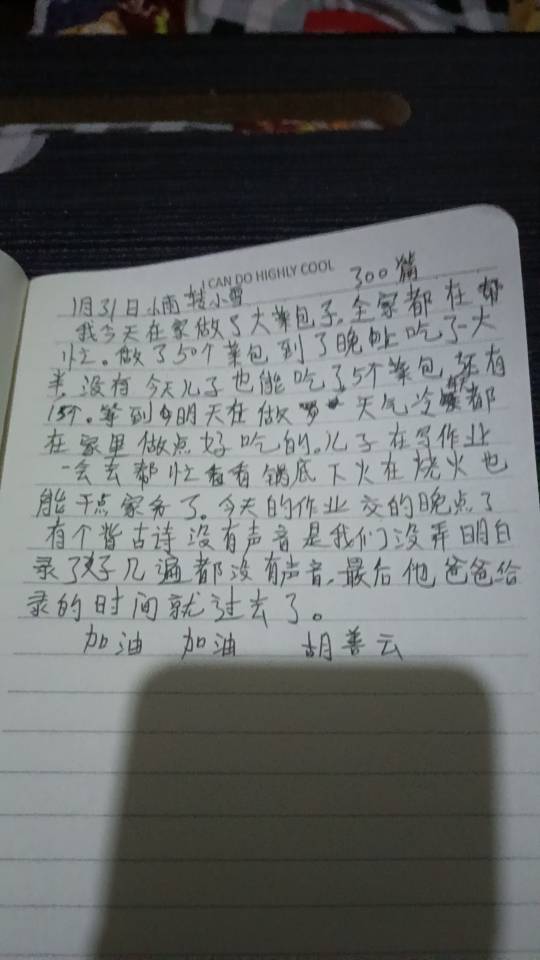 I CAN DO HIGHLY COOL
300篇
1月31日小雨转小雪
我今天在家做了大菜包子,全家都在帮
忙。做了50个菜包到了晚上吃了一大
半,没有今天儿子也能吃了5个菜包,还有
15个。等到明天在做 天气冷都
在家里做点好吃的。儿子在写作业
一会去帮忙看看锅底下火在烧火也
能干点家务了。今天的作业交的晚点了
有个背古诗没有声音是我们没弄明白
录了好几遍都没有声音,最后他爸爸给
录的时间就过去了。
加油 加油 胡善云